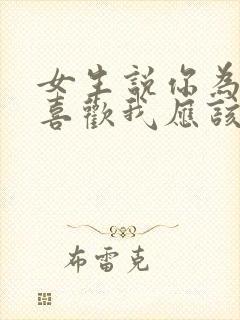 女生說你為
喜歡我應該
布雷克